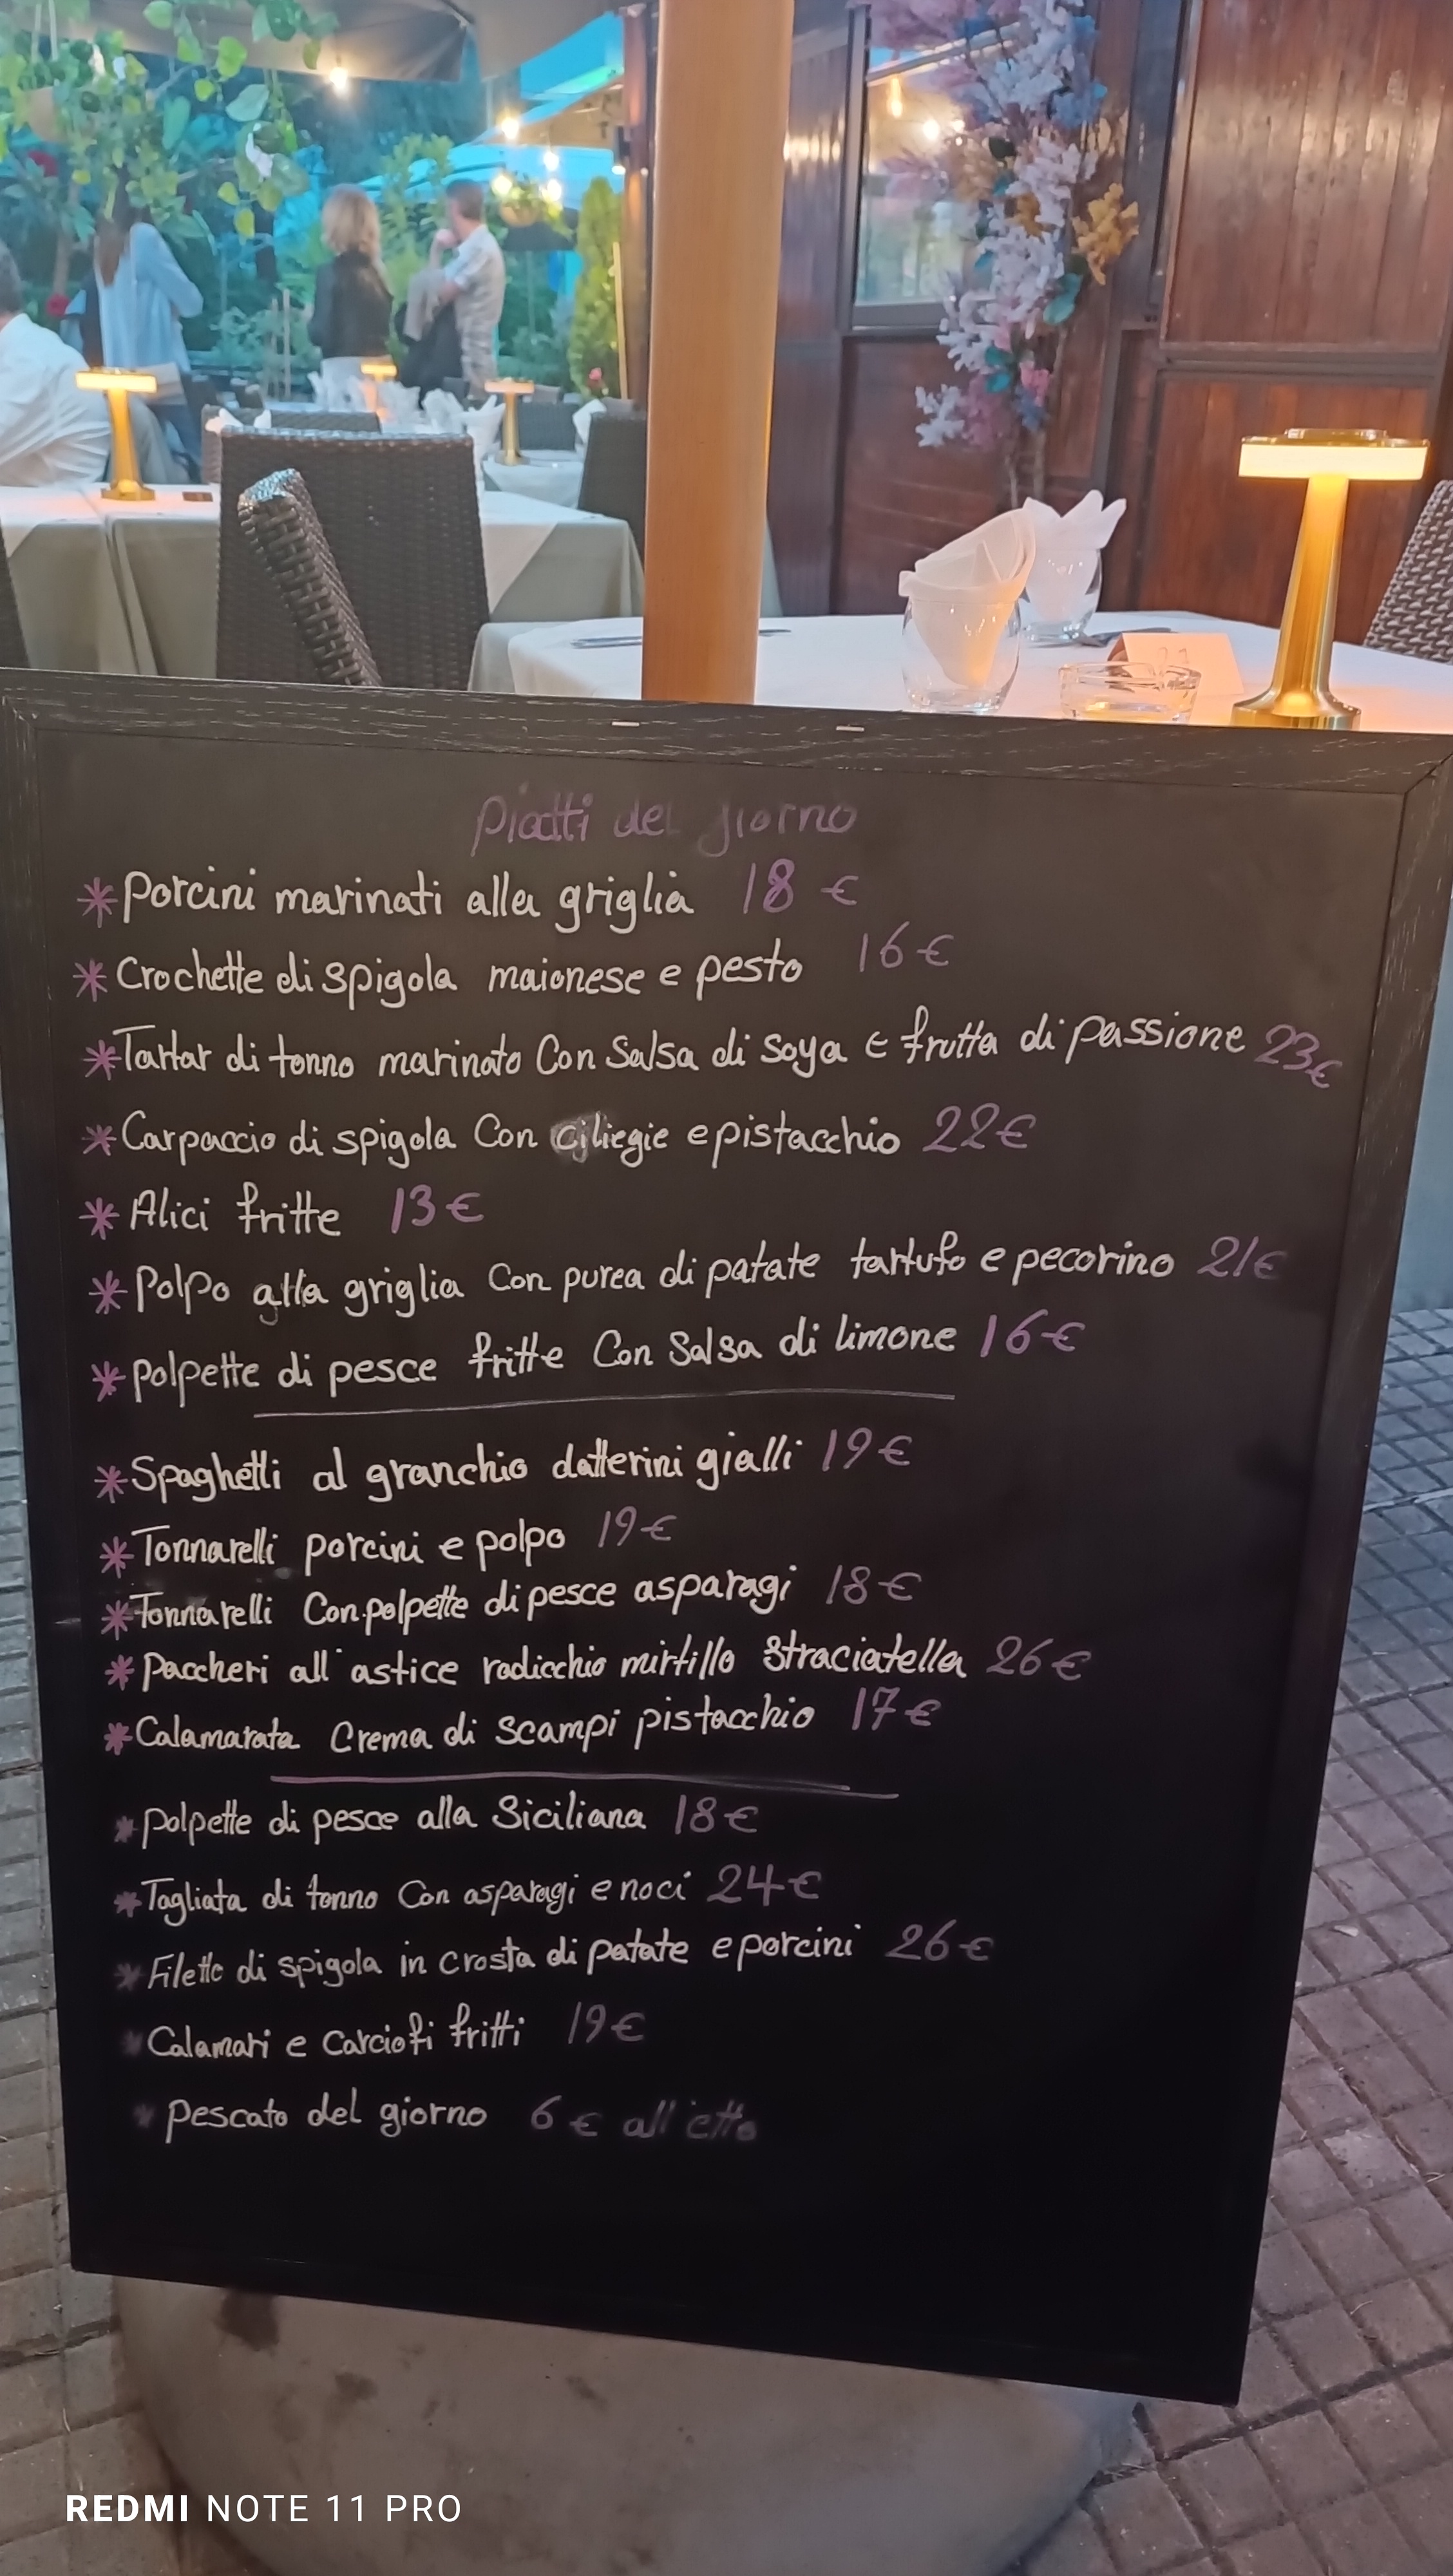 Piatti del giorno
* Porcini marinati alla griglia 18 €
* Crochette di spigola maionese e pesto 16 €
* Tartar di tonno marinato Con Salsa di Soya E frutta di passione 23 €
* Carpaccio di spigola Con ciliegie e pistacchio 22 €
* Alici fritte 13 €
* Polpo alla griglia Con purea di patate tartufo e pecorino 21 €
* Polpette di pesce fritte Con Salsa di limone 16 €
* Spaghetti al granchio datterini gialli 19 €
* Tonnarelli porcini e polpo 19 €
* Tonnarelli Con polpette di pesce asparagi 18 €
* Paccheri all'astice radicchio mirtillo Straciatella 26 €
* Calamarata Crema di scampi pistacchio 17 €
* Polpette di pesce alla Siciliana 18 €
* Tagliata di tonno Con asparagi e noci 24 €
* Filetto di spigola in crosta di patate e porcini 26 €
* Calamari e Carciofi fritti 19 €
* Pescato del giorno 6 € all'etto
REDMI NOTE 11 PRO